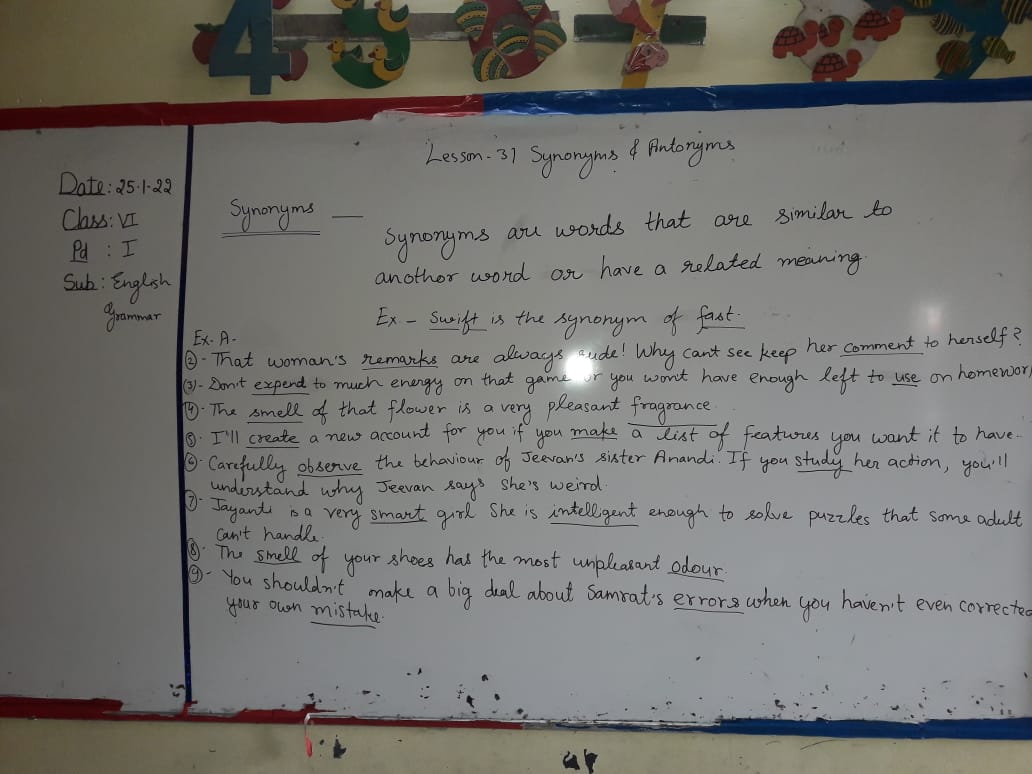 4
Lesson-31 Synonyms & Antonyms
Date: 25.1.22
Class: VI
Pd : I
Sub: English
Grammar
Synonyms —
Synonyms are words that are similar to
anothor word or have a related meaning.
Ex - Swift is the synonym of fast.
Ex- A-
(2)- That woman's remarks are always rude! Why can't see keep her comment to herself?
(3)- Don't expend to much energy on that game or you won't have enough left to use on homewor
(4)- The smell of that flower is a very pleasant fragrance.
(5)- I'll create a new account for you if you make a list of features you want it to have.
(6)- Carefully observe the behaviour of Jeevan's sister Anandi. If you study her action, you'll
understand why Jeevan says she's weird.
(7)- Jayanti is a very smart girl She is intelligent enough to solve puzzles that some adult
can't handle.
(8)- The smell of your shoes has the most unpleasant odour.
(9)- You shouldn't make a big deal about Samrat's errors when you haven't even corrected
your own mistake.